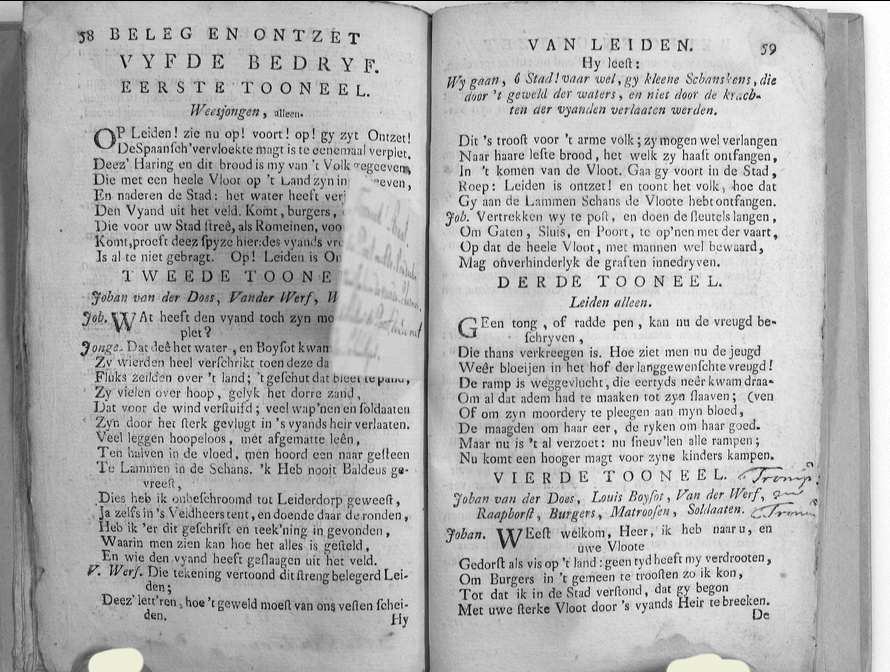 58 BELEG EN ONTZET
VYFDE BEDRYF.
EERSTE TOONEEL.
Weesjongen, alleen.
OP Leiden! zie nu op! voort! op! gy zyt Ontzet!
De Spaanſch' vervloekte magt is te eenemaal verplet.
Deez' Haring en dit brood is my van 't Volk gegeeven,
Die met een heele Vloot op 't Land zyn in
En naderen de Stad: het water heeft
Den Vyand uit het veld. Komt, burgers,
Die voor uw Stad ſtreê, als Romeinen,
Komt, proeft deez ſpyze hier: des vyands
Is al te niet gebragt. Op! Leiden is
TWEEDE
Johan van der Does, Vander Werf,
Joh. WAt heeft den vyand toch zyn
plet?
Jonge. Dat deê het water, en Boyſot
Zy wierden heel verſchrikt toen deze
Fluks zeilden over 't land; 't geſchut dat
Zy vielen over hoop, gelyk het dorre zand,
Dat voor de wind verſtuifd; veel wap'nen en ſoldaaten
Zyn door het ſterk gevlugt in 's vyands heir verlaaten.
Veel leggen hoopeloos, met afgematte leên,
Ten halven in de vloed, men hoord een naar geſteen
Te Lammen in de Schans. 'k Heb nooit Baldeus ge-
vreeſt,
Dies heb ik onbeſchroomd tot Leiderdorp geweeſt,
Ja zelfs in 's Veldheers tent, en doende daar de ronden,
Heb ik 'er dit geſchrift en teek'ning in gevonden,
Waarin men zien kan hoe het alles is geſteld,
En wie den vyand heeft geſlaagen uit het veld.
V. Werf. Die tekening vertoond dit ſtreng belegerd Lei-
den;
Deez' lett'ren, hoe 't geweld moeſt van ons veſten ſchei-
den,
Hy
VAN LEIDEN. 59
Hy leeſt:
Wy gaan, ô Stad! vaar wel, gy kleene Schansſens, die
door 't geweld der waters, en niet door de krach-
ten der vyanden verlaaten werden.
Dit 's trooſt voor 't arme volk; zy mogen wel verlangen
Naar haare leſte brood, het welk zy haaſt ontfangen,
In 't komen van de Vloot. Gaa gy voort in de Stad,
Roep: Leiden is ontzet! en toont het volk, hoe dat
Gy aan de Lammen Schans de Vloote hebt ontfangen.
Joh. Vertrekken wy te poſt, en doen de ſleutels langen,
Om Gaten, Sluis, en Poort, te op'nen met der vaart,
Op dat de heele Vloot, met mannen wel bewaard,
Mag onverhinderlyk de graften inne dryven.
DERDE TOONEEL.
Leiden alleen.
GEen tong, of radde pen, kan nu de vreugd be-
ſchryven,
Die thans verkreegen is. Hoe ziet men nu de jeugd
Weêr bloeijen in het hof der langgewenſchte vreugd!
De ramp is weggevlucht, die eertyds neêr kwam draa-
Om al dat adem had te maaken tot zyn ſlaaven; (ven
Of om zyn moordery te pleegen aan myn bloed,
De maagden om haar eer, de ryken om haar goed.
Maar nu is 't al verzoet: nu ſneuv'len alle rampen;
Nu komt een hooger magt voor zyne kinders kampen.
VIERDE TOONEEL.
Johan van der Does, Louis Boyſot, Van der Werf,
Raaphorſt, Burgers, Matrooſen, Soldaaten.
Johan. WEeſt welkom, Heer, ik heb naar u, en
uwe Vloote
Gedorſt als vis op 't land: geen tyd heeft my verdrooten,
Om Burgers in 't gemeen te trooſten zo ik kon,
Tot dat ik in de Stad verſtond, dat gy begon
Met uwe ſterke Vloot door 's vyands Heir te breeken.
De